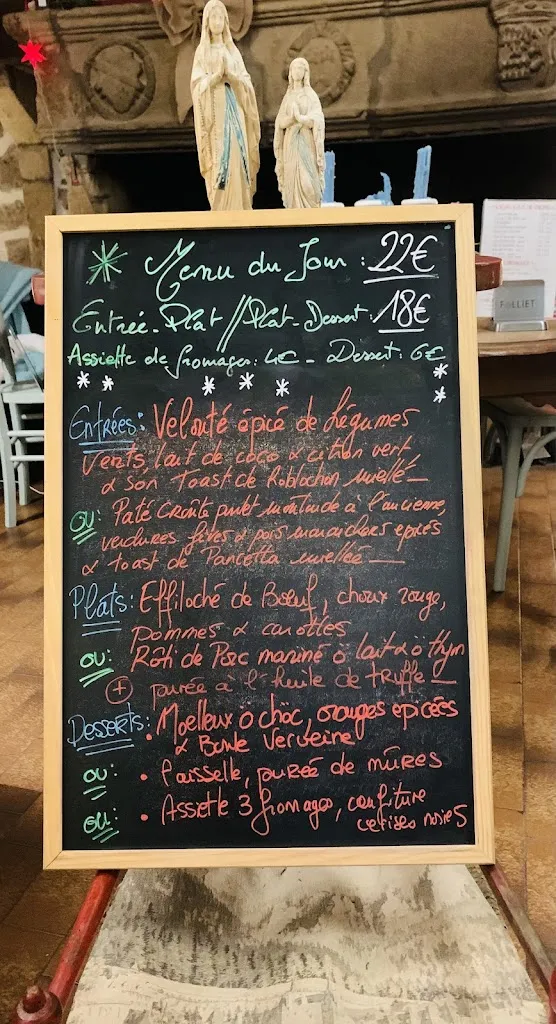 Menu du Jour : 22€
Entrée-Plat // Plat-Dessert : 18€
Assiette de fromages : 4€ - Dessert : 6€
Entrées : Velouté épicé de légumes
Verts, lait de coco & citron vert
& son Toast de Reblochon miellé
ou : Paté croûte poulet moutarde à l'ancienne,
verdures fèves & pois maraîchers epicés
& toast de Pancetta miellée
Plats : Effiloché de Bœuf, choux rouge,
Pommes & carottes
ou : Rôti de Porc mariné ô lait & ô thym
+ purée à l'huile de truffe
Desserts : Moelleux ô choc, oranges epicées
& Boule Verveine
ou : • Faisselle, purée de mûres
ou : • Assiette 3 fromages, confiture
cerises noires
FOLLIET